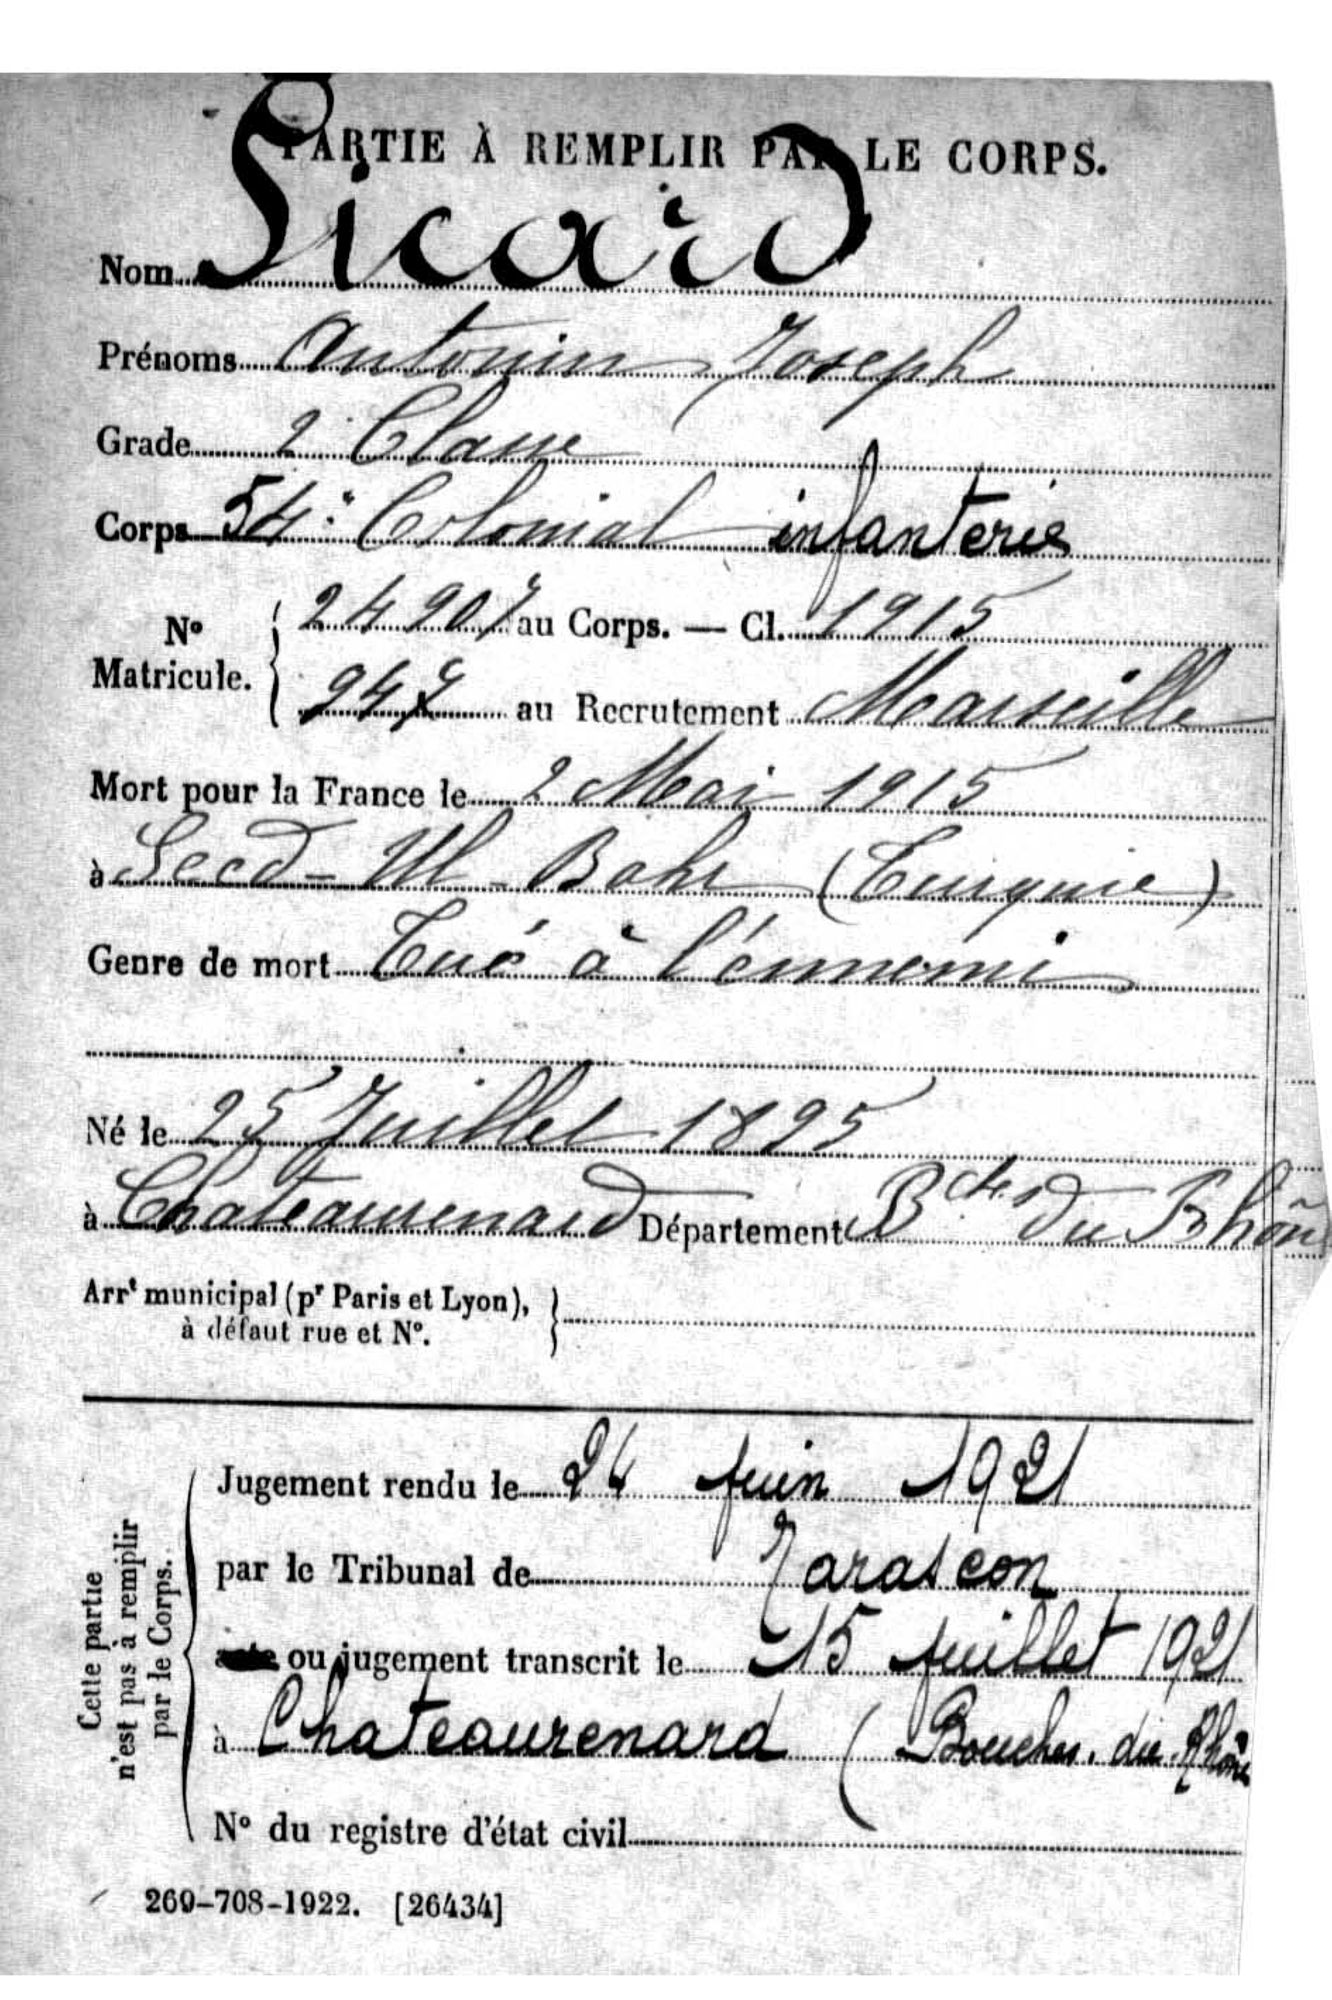 PARTIE À REMPLIR PAR LE CORPS.
Nom Sicard
Prénoms Antonin Joseph
Grade 2e Classe
Corps 54e Colonial infanterie
No Matricule. { 24907 au Corps. — Cl. 1915
947 au Recrutement Marseille
Mort pour la France le 2 Mai 1915
à Sedd-Ul-Bahr (Turquie)
Genre de mort Tué à l'ennemi
Né le 25 Juillet 1895
à Chateaurenard Département Bches du Rhône
Arrt municipal (pr Paris et Lyon),
à défaut rue et No.
Cette partie
n'est pas à remplir
par le Corps.
Jugement rendu le 24 Juin 1921
par le Tribunal de Tarascon
acte ou jugement transcrit le 15 Juillet 1921
à Chateaurenard (Bouches. du. Rhône
No du registre d'état civil
269-708-1922. [26434]